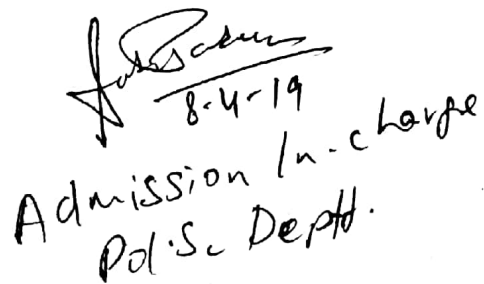 8-4-19
Admission In-charge
Pol.Sc Deptt.